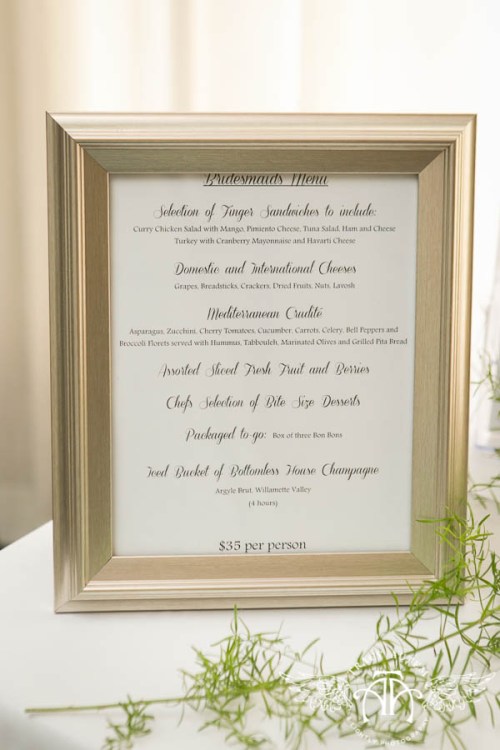 Bridesmaids Menu
Selection of Finger Sandwiches to include:
Curry Chicken Salad with Mango, Pimiento Cheese, Tuna Salad, Ham and Cheese
Turkey with Cranberry Mayonnaise and Havarti Cheese
Domestic and International Cheeses
Grapes, Breadsticks, Crackers, Dried Fruits, Nuts, Lavosh
Mediterranean Crudité
Asparagus, Zucchini, Cherry Tomatoes, Cucumber, Carrots, Celery, Bell Peppers and
Broccoli Florets served with Hummus, Tabbouleh, Marinated Olives and Grilled Pita Bread
Assorted Sliced Fresh Fruit and Berries
Chefs Selection of Bite Size Desserts
Packaged to-go: Box of three Bon Bons
Iced Bucket of Bottomless House Champagne
Argyle Brut, Willamette Valley
(4 hours)
$35 per person